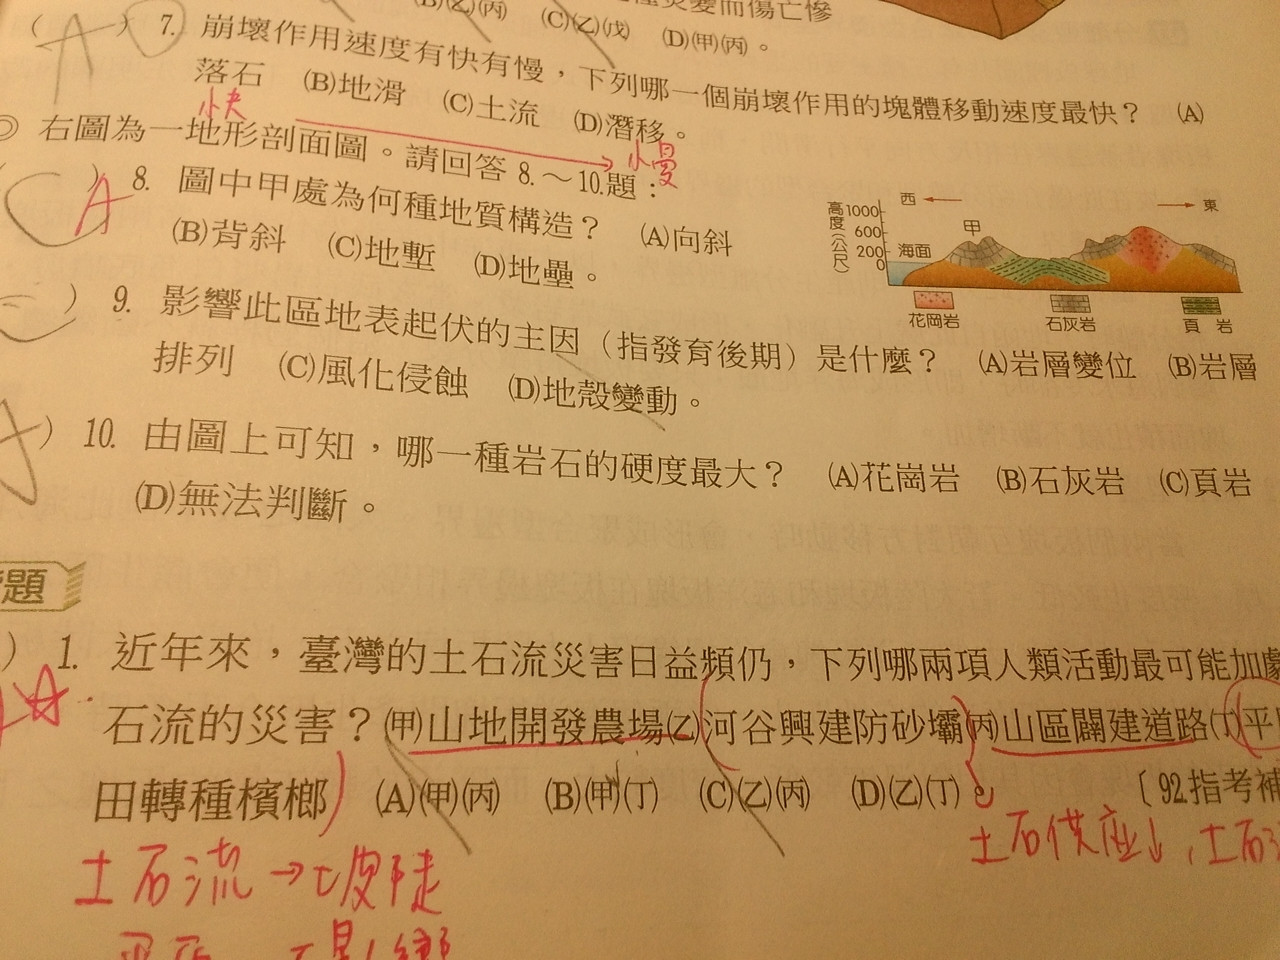 (B)(乙)(丙) (C)(乙)(戊) (D)(甲)(丙)。
( A ) 7. 崩壞作用速度有快有慢，下列哪一個崩壞作用的塊體移動速度最快？ (A)
落石 (B)地滑 (C)土流 (D)潛移。
快
慢
◎ 右圖為一地形剖面圖。請回答 8.～10.題：
A ) 8. 圖中甲處為何種地質構造？ (A)向斜
(B)背斜 (C)地塹 (D)地壘。
高度(公尺)
1000
600
200
0
西
東
甲
海面
花岡岩
石灰岩
頁岩
) 9. 影響此區地表起伏的主因（指發育後期）是什麼？ (A)岩層變位 (B)岩層
排列 (C)風化侵蝕 (D)地殼變動。
) 10. 由圖上可知，哪一種岩石的硬度最大？ (A)花崗岩 (B)石灰岩 (C)頁岩
(D)無法判斷。
題
) 1. 近年來，臺灣的土石流災害日益頻仍，下列哪兩項人類活動最可能加劇
石流的災害？(甲)山地開發農場(乙)河谷興建防砂壩(丙)山區闢建道路(丁)平
田轉種檳榔 (A)(甲)(丙) (B)(甲)(丁) (C)(乙)(丙) (D)(乙)(丁)。 〔92.指考補
土石供應↓，土石
土石流→坡陡